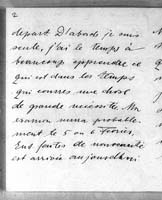 2
départ D'abord je suis
seule, j'ai le temps à
beaucoup apprendre ce
qui est dans les temps
qui courrer une chose
de grande nécessité. Mon
examen sera probable-
ment le 5 ou 6 Février.
En fautes de nouveauté
est arrivée aujourd'hui